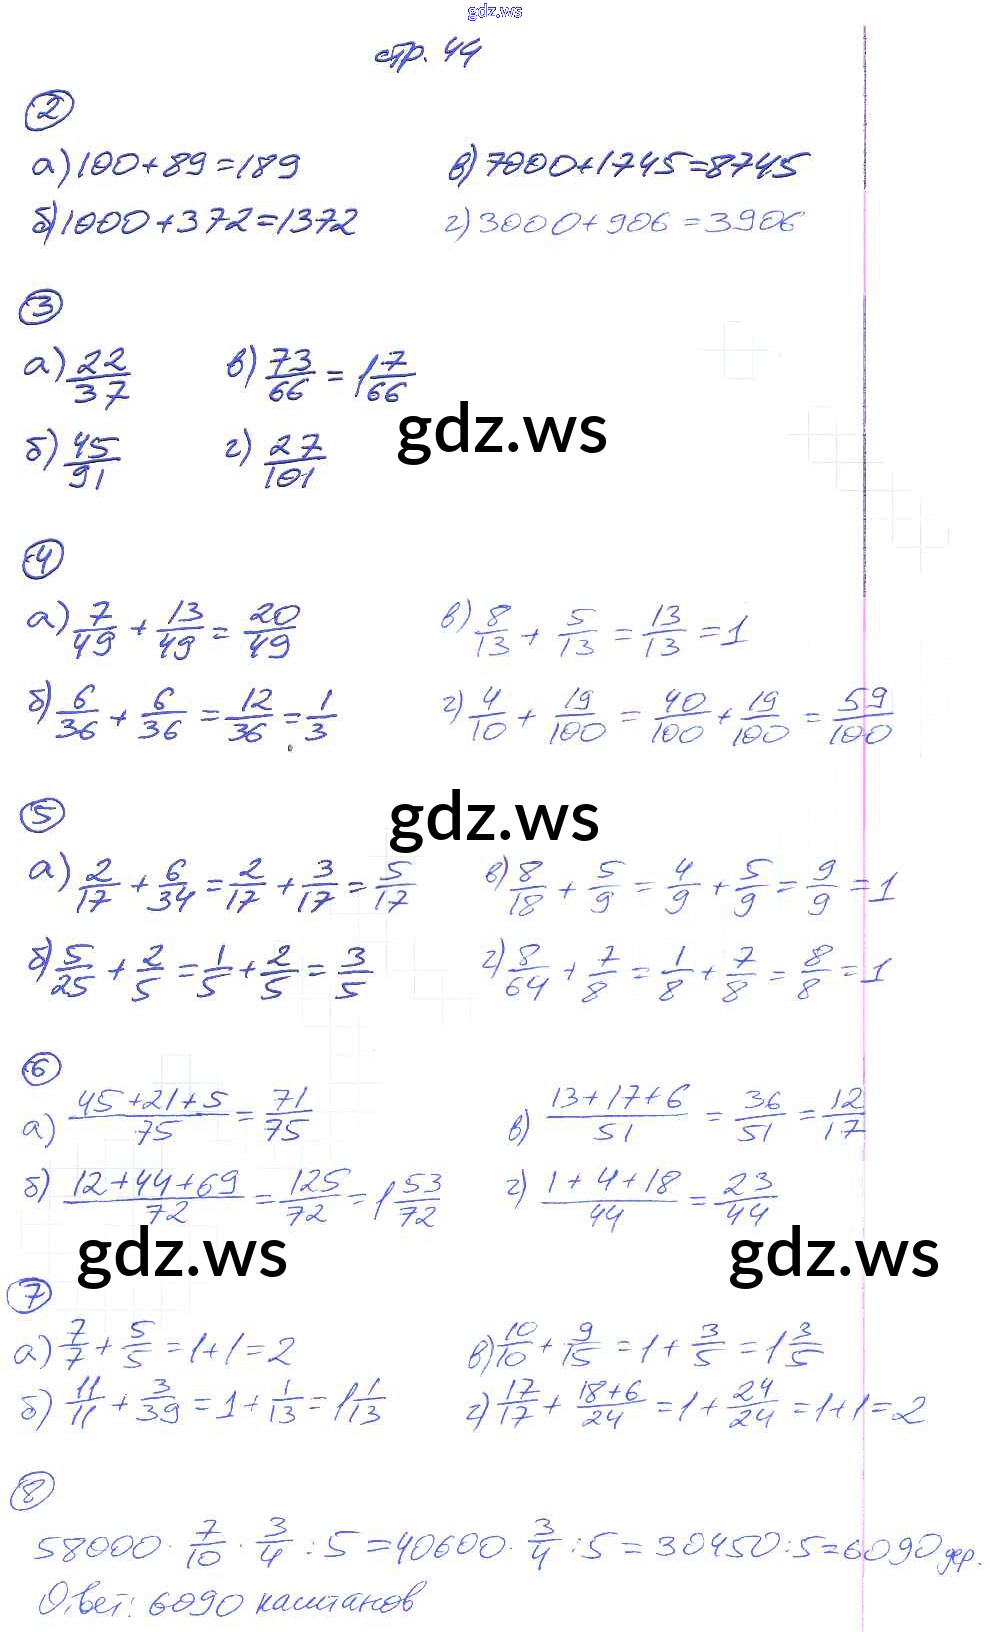 gdz.ws
стр. 44
2
а) 100+89=189 в) 7000+1745=8745
б) 1000+372=1372 г) 3000+906=3906
3
а) 22/37 в) 73/66 = 1 7/66
gdz.ws
б) 45/91 г) 27/101
4
а) 7/49 + 13/49 = 20/49 в) 8/13 + 5/13 = 13/13 = 1
б) 6/36 + 6/36 = 12/36 = 1/3 г) 4/10 + 19/100 = 40/100 + 19/100 = 59/100
5
gdz.ws
а) 2/17 + 6/34 = 2/17 + 3/17 = 5/17 в) 8/18 + 5/9 = 4/9 + 5/9 = 9/9 = 1
б) 5/25 + 2/5 = 1/5 + 2/5 = 3/5 г) 8/64 + 7/8 = 1/8 + 7/8 = 8/8 = 1
6
а) (45+21+5)/75 = 71/75 в) (13+17+6)/51 = 36/51 = 12/17
б) (12+44+69)/72 = 125/72 = 1 53/72 г) (1+4+18)/44 = 23/44
gdz.ws gdz.ws
7
а) 7/7 + 5/5 = 1+1=2 в) 10/10 + 9/15 = 1 + 3/5 = 1 3/5
б) 11/11 + 3/39 = 1 + 1/13 = 1 1/13 г) 17/17 + (18+6)/24 = 1 + 24/24 = 1+1=2
8
58000 · 7/10 · 3/4 : 5 = 40600 · 3/4 : 5 = 30450:5=6090 дер.
Ответ: 6090 каштанов